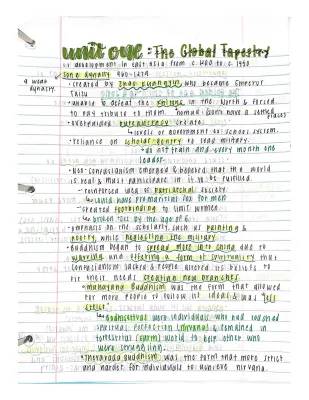 unit one: The Global Tapestry
↳ development in East Asia from c. 1200 to c. 1450
Song dynasty 960-1279
a weak dynasty.
• created by Zhao Kuangyin, who became Emperor
Taizu
• unable to defeat the in the North & forced
to pay tribute to them.
• expanded bureaucracy
↳ levels of government & school system.
• reliance on scholar gentry to lead military.
↳ do not train and every month one
leader.
• Neo-Confucianism emerged & believed that the world
is real & must participate in it to be fulfilled
- reinforced idea of patriarchal society
↳ could have premarital sex for men
- created footbinding to limit women
↳ broken toes by the age of 6.
• emphasis on the scholarly such as painting &
poetry, while neglecting the military.
• Buddhism began to spread more into China due to
warring and offering a form of spirituality that
Confucianism lacked & people altered its beliefs to
fit their needs creating new branches
• Mahayana Buddhism was the form that allowed
for more people to follow its ideals & was less
strict.
↳ Bodhisattvas were individuals who had reached
spiritual perfection (nirvana) & remained in
terrestrial (earth) world to help others who
were struggling.
• Theravada Buddhism was the form that more strict
and harder for individuals to achieve nirvana.